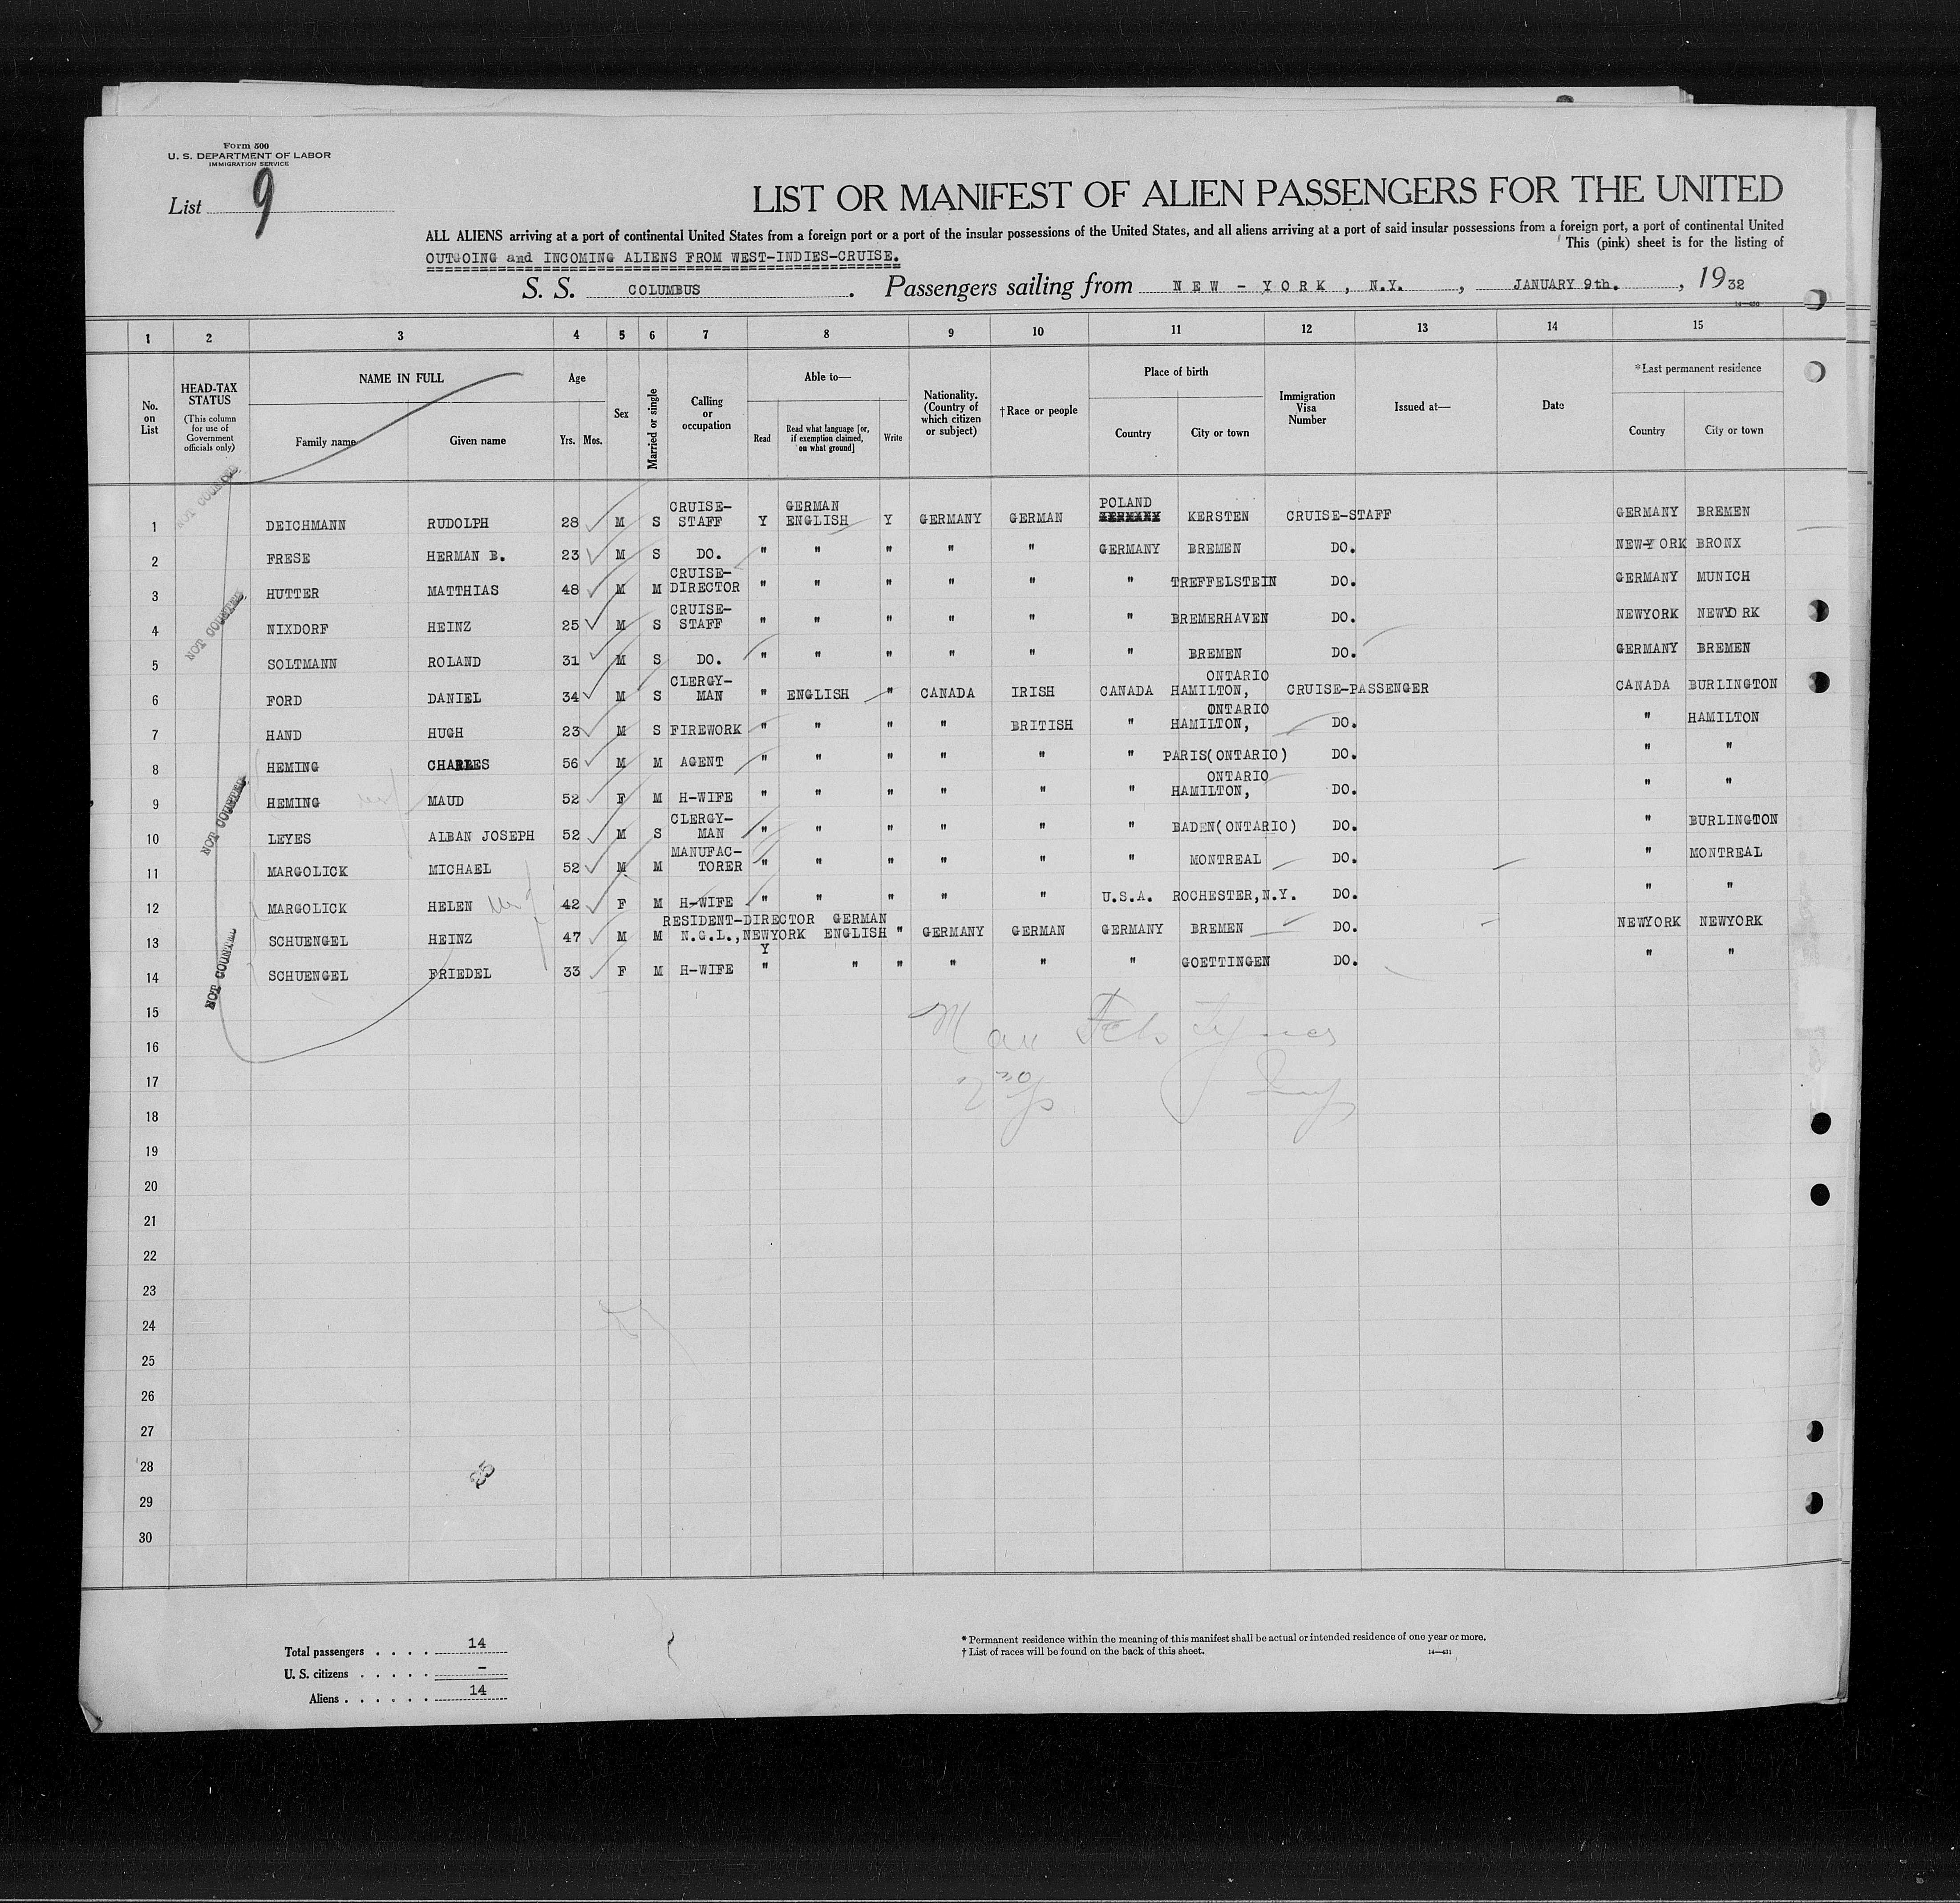 Form 500
U. S. DEPARTMENT OF LABOR
IMMIGRATION SERVICE
List 9
LIST OR MANIFEST OF ALIEN PASSENGERS FOR THE UNITED
ALL ALIENS arriving at a port of continental United States from a foreign port or a port of the insular possessions of the United States, and all aliens arriving at a port of said insular possessions from a foreign port, a port of continental United
This (pink) sheet is for the listing of
OUTGOING and INCOMING ALIENS FROM WEST-INDIES-CRUISE.
S. S. COLUMBUS. Passengers sailing from NEW-YORK, N.Y., JANUARY 9th., 1932
1 2 3 4 5 6 7 8 9 10 11 12 13 14 15
No. on List
HEAD-TAX STATUS
(This column for use of Government officials only)
NAME IN FULL
Family name
Given name
Age
Yrs. Mos.
Sex
Married or single
Calling or occupation
Able to—
Read
Read what language [or, if exemption claimed, on what ground]
Write
Nationality. (Country of which citizen or subject)
†Race or people
Place of birth
Country
City or town
Immigration Visa Number
Issued at—
Date
*Last permanent residence
Country
City or town
1 DEICHMANN RUDOLPH 28 M S CRUISE-STAFF Y GERMAN ENGLISH Y GERMANY GERMAN POLAND GERMANY KERSTEN CRUISE-STAFF GERMANY BREMEN
2 FRESE HERMAN B. 23 M S DO. " " " " " GERMANY BREMEN DO. NEW-YORK BRONX
3 HUTTER MATTHIAS 48 M M CRUISE-DIRECTOR " " " " " " TREFFELSTEIN DO. GERMANY MUNICH
4 NIXDORF HEINZ 25 M S CRUISE-STAFF " " " " " " BREMERHAVEN DO. NEWYORK NEWYORK
5 SOLTMANN ROLAND 31 M S DO. " " " " " " BREMEN DO. GERMANY BREMEN
6 FORD DANIEL 34 M S CLERGY-MAN " ENGLISH " CANADA IRISH CANADA HAMILTON, ONTARIO CRUISE-PASSENGER CANADA BURLINGTON
7 HAND HUGH 23 M S FIREWORK " " " " BRITISH " HAMILTON, ONTARIO DO. " HAMILTON
8 HEMING CHARLES 56 M M AGENT " " " " " " PARIS(ONTARIO) DO. " "
9 HEMING MAUD 52 F M H-WIFE " " " " " " HAMILTON, ONTARIO DO. " "
10 LEYES ALBAN JOSEPH 52 M S CLERGY-MAN " " " " " " BADEN(ONTARIO) DO. " BURLINGTON
11 MARGOLICK MICHAEL 52 M M MANUFAC-TORER " " " " " " MONTREAL DO. " MONTREAL
12 MARGOLICK HELEN 42 F M H-WIFE " " " " " U.S.A. ROCHESTER,N.Y. DO. " "
13 SCHUENGEL HEINZ 47 M M RESIDENT-DIRECTOR N.G.L.,NEWYORK Y GERMAN ENGLISH " GERMANY GERMAN GERMANY BREMEN DO. NEWYORK NEWYORK
14 SCHUENGEL FRIEDEL 33 F M H-WIFE " " " " " " GOETTINGEN DO. " "
15
16
17
18
19
20
21
22
23
24
25
26
27
28
29
30
NOT COUNTED
NOT COUNTED
NOT COUNTED
NOT COUNTED
Total passengers . . . . 14
U. S. citizens . . . . . –
Aliens . . . . . . 14
* Permanent residence within the meaning of this manifest shall be actual or intended residence of one year or more.
† List of races will be found on the back of this sheet.
14—431